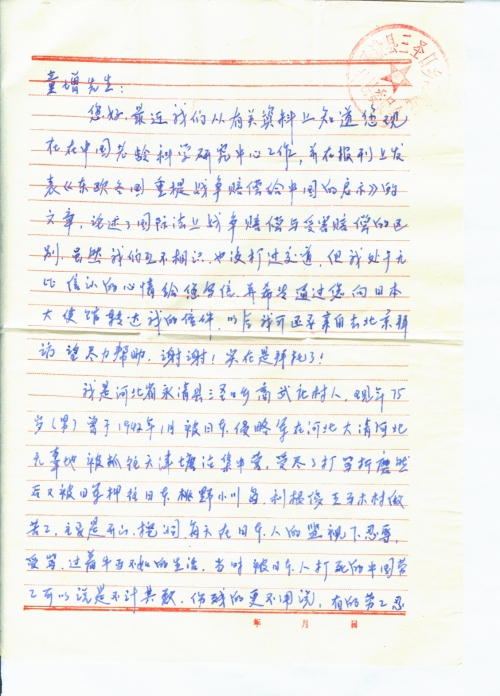 县三圣口乡
童增先生:
您好,最近我们从有关资料上知道您现
在在中国老龄科学研究中心工作,并在报刊上发
表《东欧各国重提战争赔偿给中国的启示》的
文章,论述了国际法上战争赔偿与受害赔偿的区
别,虽然我们互不相识,也没打过交道,但我处于无
比信认的心情给您写信,并希望通过您向日本
大使馆转达我的信件,以后我可还要亲自去北京拜
访,望尽力帮助,谢谢!实在是拜托了!
我是河北省永清县三圣口乡高武社村人,现年75
岁(男)曾于1942年1月被日本侵略军在河北大清河北
无辜地被抓往天津塘沽集中营,受尽了打骂折磨然
后又被日军押往日本 野小川 利根 木村做
苦工,主要是开山、挖洞每天在日本人的监视下忍辱
受骂,过着牛马不如的生活,当时被日本人打死的中国劳
工可以说是不计其数,伤残的更不用说,有的劳工忍
年 月 日